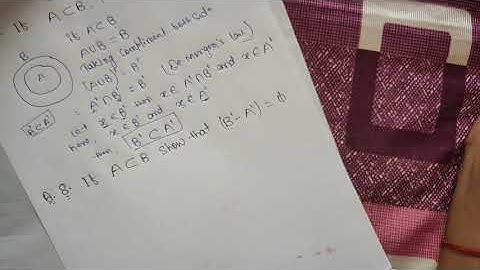 If A⊂B.
If A⊂B
A∪B = B
Taking compliment both side
(A∪B)' = B'
= A'∩B' = B' (De morgan's law)
Let x∈B' then x∈A'∩B' and x∈A'
here, x∈B' and x∈A'
then, B' ⊂ A'
B
A
B'⊂A'
Q. 8. If A⊂B show that (B'-A') = ϕ